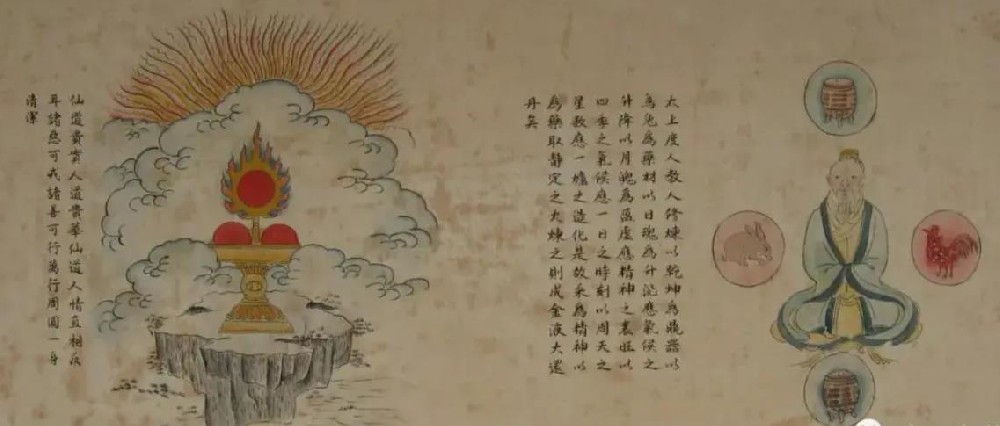 太上度人教人修煉以乾坤為鼎器以
烏兔為藥材以日魂為升沉應氣候之
升降以月魄為盈虛應精神之衰旺以
四季之氣候應一日之時刻以周天之
星數應一爐之造化是故采烏精神以
為藥取靜定之火煉之則成金液大還
丹矣
仙道貴實人道貴華仙道人情直相反
耳諸惡可戒諸善可行萬行周圓一身
清潔